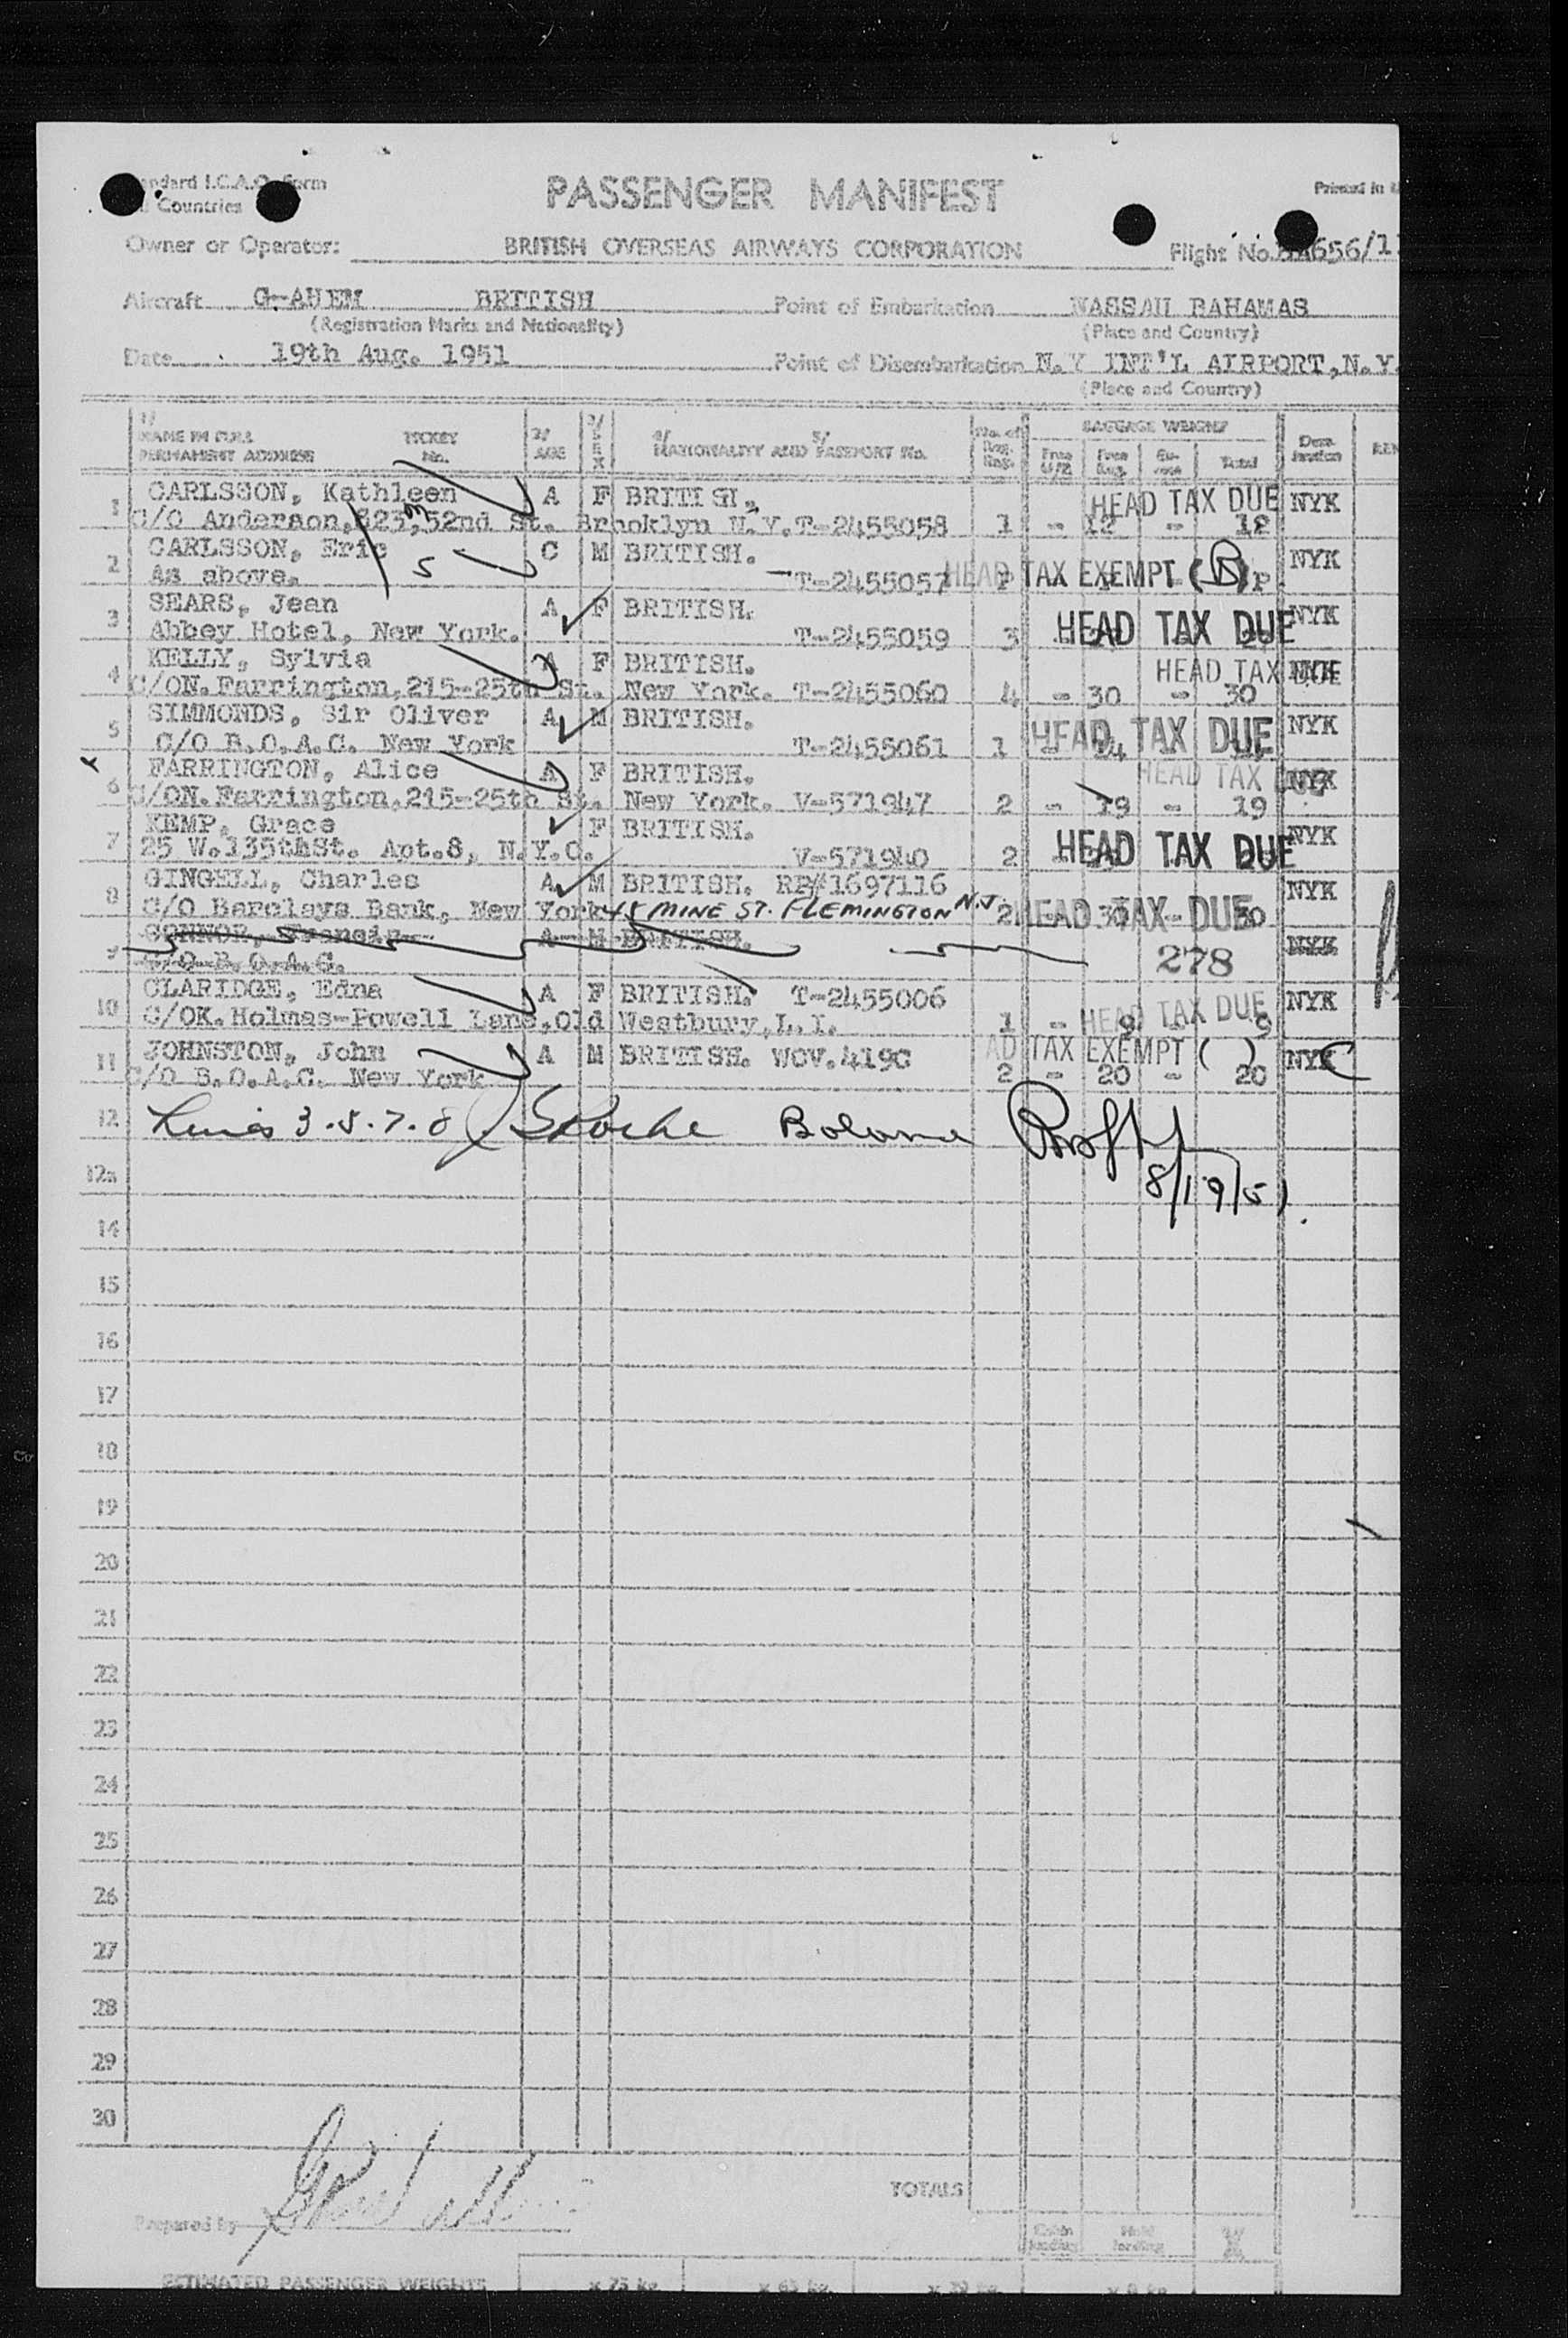 Standard I.C.A.O. Form
Countries
PASSENGER MANIFEST
Printed in
Owner or Operator: BRITISH OVERSEAS AIRWAYS CORPORATION Flight No. 656/1
Aircraft G-AHEM BRITISH Point of Embarkation NASSAU BAHAMAS
(Registration Marks and Nationality) (Place and Country)
Date 19th Aug. 1951 Point of Disembarkation N.Y INT'L AIRPORT,N.Y.
(Place and Country)
1/ NAME IN FULL PERMANENT ADDRESS TICKET No. 2/ AGE 3/ SEX 4/ NATIONALITY AND 5/ PASSPORT No. No. of BAGGAGE WEIGHT Free Free Total Destination
1 CARLSSON, Kathleen A F BRITISH. HEAD TAX DUE NYK
C/O Anderson, 823, 52nd St. Brooklyn N.Y. T-2455058 1 - 12 - 12
2 CARLSSON, Eric 5 C M BRITISH. NYK
As above. T-2455057 HEAD TAX EXEMPT (B)
3 SEARS, Jean A F BRITISH. NYK
Abbey Hotel, New York. T-2455059 3 HEAD TAX DUE
4 KELLY, Sylvia A F BRITISH. HEAD TAX DUE NYK
C/ON.Farrington,215-25th St. New York. T-2455060 4 - 30 - 30
5 SIMMONDS, Sir Oliver A M BRITISH. NYK
C/O B.O.A.C. New York T-2455061 1 HEAD TAX DUE
6 FARRINGTON, Alice A F BRITISH. HEAD TAX DUE NYK
C/ON.Farrington,215-25th St. New York. V-571947 2 - 19 - 19
7 KEMP, Grace F BRITISH. NYK
25 W.135thSt. Apt.8, N.Y.C. V-571940 2 HEAD TAX DUE
8 GINGELL, Charles A M BRITISH. RP#1697116 NYK
C/O Barclays Bank, New York 48 MINE ST. FLEMINGTON N.J 2 - 30 - 30 HEAD TAX DUE
9 CONNOR, Francis A M BRITISH. NYK
C/O B.O.A.C. 278
10 CLARIDGE, Edna A F BRITISH. T-2455006 NYK
C/OK.Holmes-Powell Lane,Old Westbury,L.I. 1 - 9 - 9 HEAD TAX DUE
11 JOHNSTON, John A M BRITISH. WOV.419C HEAD TAX EXEMPT ( ) NYK C
C/O B.O.A.C. New York 2 - 20 - 20
12 3.5.7.8
8/19/51
12a
14
15
16
17
18
19
20
21
22
23
24
25
26
27
28
29
30
TOTALS
Prepared by
Cabin loading Hold loading
ESTIMATED PASSENGER WEIGHTS x 75 kg. x 65 kg. x 39 kg. x 8 kg.